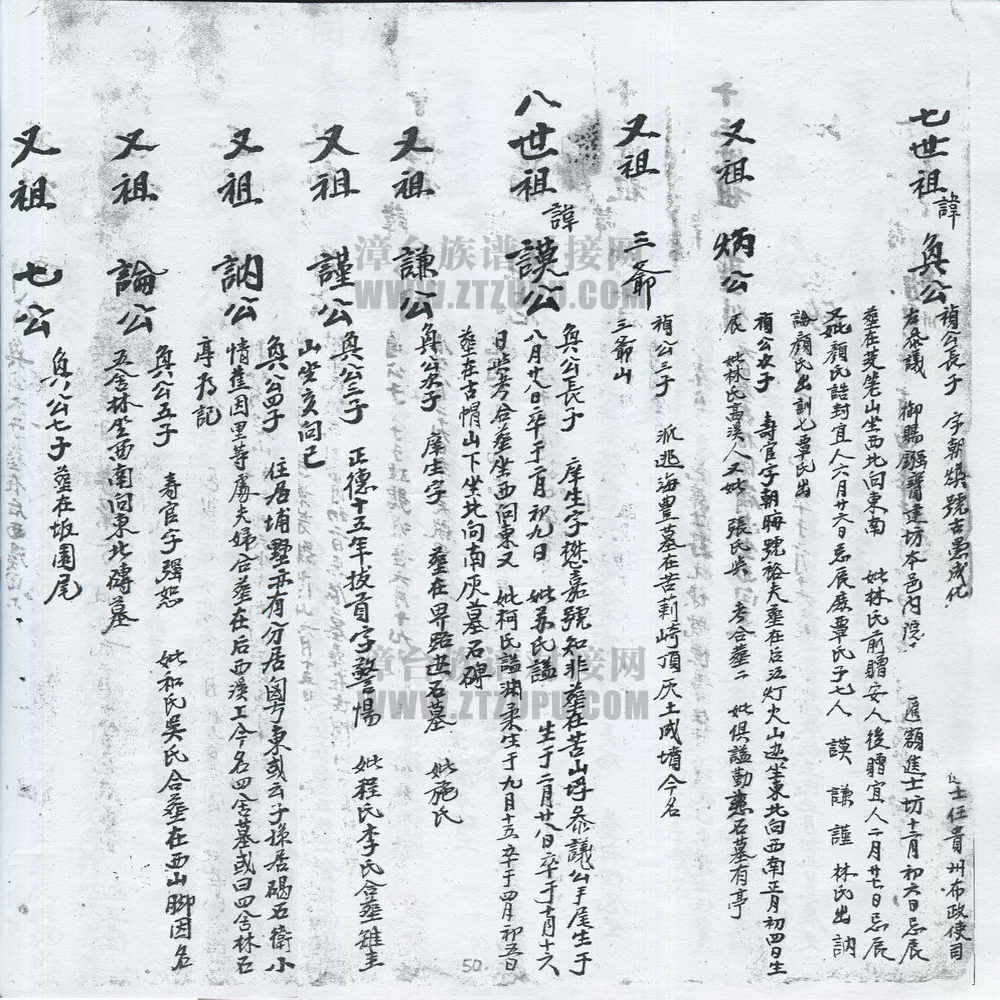 七世祖諱奐公
禎公長子 字朝煥號古愚成化 士任貴州布政使司
左參議 御賜 建坊本邑內院 匾額進士坊十二月初六日忌辰
葬在 山坐西北向東南 妣林氏前贈安人後贈宜人二月廿七日忌辰
又妣顏氏誥封宜人六月廿六日忌辰庶覃氏子七人 謨 謙 謹 林氏出 訥
論顏氏出訓七覃氏出
又祖 炳公
禎公次子 壽官字朝晦號裕夫葬在后江灯火山 坐東北向西南正月初四日生
辰 妣林氏高溪人又妣 張氏 考合葬二 妣俱謚勤 石墓有亭
又祖 三爺
禎公三子 派 海豊墓在苦莿崎頂灰土成墳今名
三爺山
八世祖諱謨公
奐公長子 庠生字懋嘉號知非葬在苦山 參議公手尾生于
八月廿八日卒于二月初九日 妣苏氏謚 生于二月廿八日卒于十月十六
日 考合葬坐西向東又 妣柯氏謚淑柔生于九月十五卒于四月初五日
葬在古帽山下坐北向南灰墓石碑
又祖 謙公
奐公次子 庠生字 葬在 路 石墓 妣施氏
又祖 謹公
奐公三子 正德十五年拔貢字警惕 妣程氏李氏合葬雖圭
山坐亥向己
又祖 訥公
奐公四子 住居埔墅 有分居 東或云子孫居碣石衛小
情 因里等處夫婦合葬在后西溪工今名四舍墓或曰四舍林石
厚為記
又祖 論公
奐公五子 壽官字強恕 妣 氏吳氏合葬在西山腳因名
五舍林坐西南向東北磚墓
又祖 七公
奐公七子 葬在坂園尾
50
漳台族谱对接网
WWW.ZTZUPU.COM
漳台族谱对接网
WWW.ZTZUPU.COM